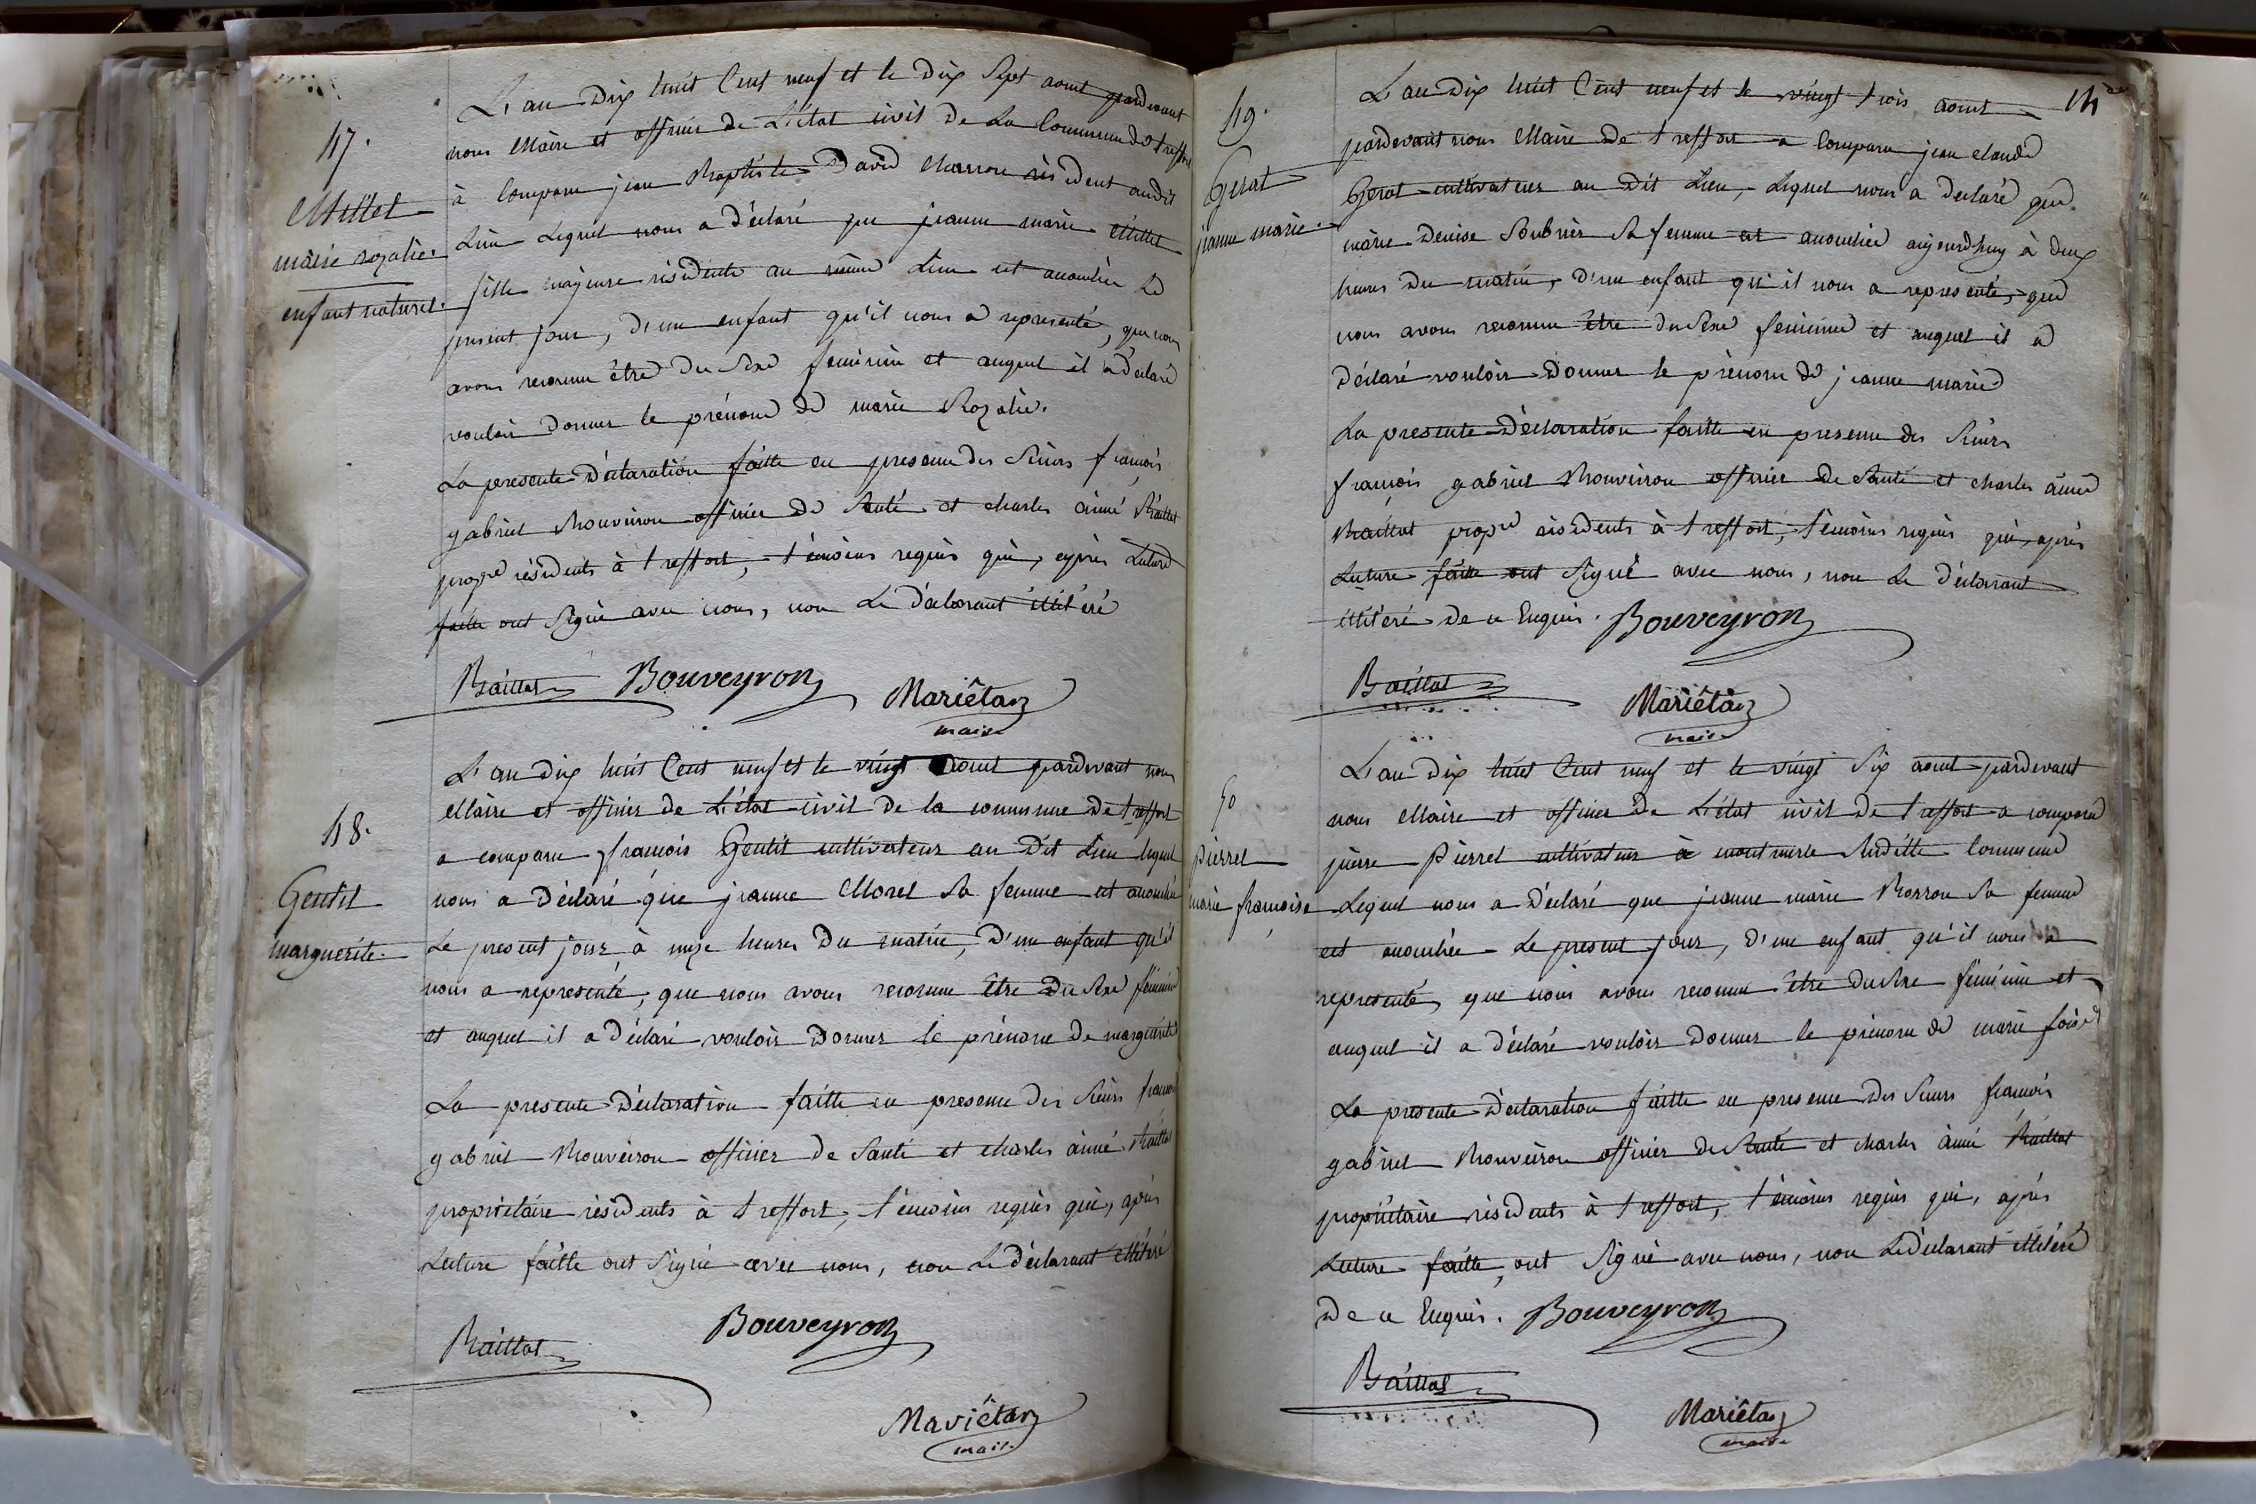 47.
Millet
marie rozalie.
enfant naturel.
L'an Dix huit Cent neuf et le Dix Sept aout pardevant
nous Maire et officier de L'état civil de La Commune de treffort
à Comparu jean Baptiste David Marron résident audit
Lieu Lequel nous a déclaré que jeanne marie Millet
fille majeure résidente au même Lieu est accouchée Le
present jour, d'un enfant qu'il nous a representé, que nous
avons reconnu être du Sexe feminin et auquel il a déclaré
vouloir Donner le prénom de marie Rozalie.
La presente Déclaration faitte en presence des Sieurs françois
gabriel Bouveiron officier de Santé et charles aimé Baillat
propre résidents à treffort, témoins requis qui, après Lecture
faitte ont Signé avec nous, non Le déclarant illitéré
Baillat Bouveyron
Mariétan
maire
48.
Gentil
marguerite.
L'an dix huit Cent neuf et le vingt aout pardevant nous
Maire et officier de L'état civil de la commune de treffort
a comparu françois Gentil cultivateur au dit Lieu lequel
nous a déclaré que jeanne Morel Sa femme est accouchée
Le present jour à onze heures du matin, d'un enfant qu'il
nous a representé, que nous avons reconnu être du Sexe féminin
et auquel il a déclaré vouloir Donner le prénom de marguerite
La presente Déclaration faitte en presence des Sieurs françois
gabriel Bouveiron officier de Santé et charles aimé Baillat
propriétaire résidents à treffort, témoins requis qui, après
Lecture faitte ont Signé avec nous, non Le déclarant illitéré
Baillat Bouveyron
Mariétan
maire
49.
Gerat
jeanne marie.
L'an Dix huit Cent neuf et le vingt trois aout
pardevant nous Maire de treffort a Comparu jean claude
Gerat cultivateur au dit Lieu, Lequel nous a declaré que
marie Denise Soubrier Sa femme est accouchée aujourd'huy à deux
heures du matin, d'un enfant qu'il nous a representé, que
nous avons reconnu être du Sexe feminin et auquel il a
déclaré vouloir Donner le prénom de jeanne marie
La presente Déclaration faitte en presence des Sieurs
françois gabriel Bouveiron officier de Santé et charles aimé
Baillat propre résidents à treffort, témoins requis qui, après
Lecture faitte ont Signé avec nous, non Le déclarant
illitéré de ce Enquis. Bouveyron
Baillat
Mariétan
maire
50
pierrel
marie françoise
L'an dix huit Cent neuf et le vingt Six aout pardevant
nous Maire et officier de L'état civil de treffort a comparu
pierre Pierrel cultivateur à montmerle Suditte Commune
Lequel nous a déclaré que jeanne marie Borron Sa femme
est accouchée Le present jour, d'un enfant qu'il nous a
representé, que nous avons reconnu être du Sexe féminin et
auquel il a déclaré vouloir Donner le prénom de marie foise
La presente Déclaration faitte en presence des Sieurs françois
gabriel Bouveiron officier de Santé et charles aimé Baillat
propriétaire résidents à treffort, témoins requis qui, après
Lecture faitte, ont Signé avec nous, non Le déclarant illitéré
de ce Enquis. Bouveyron
Baillat
Mariétan
maire